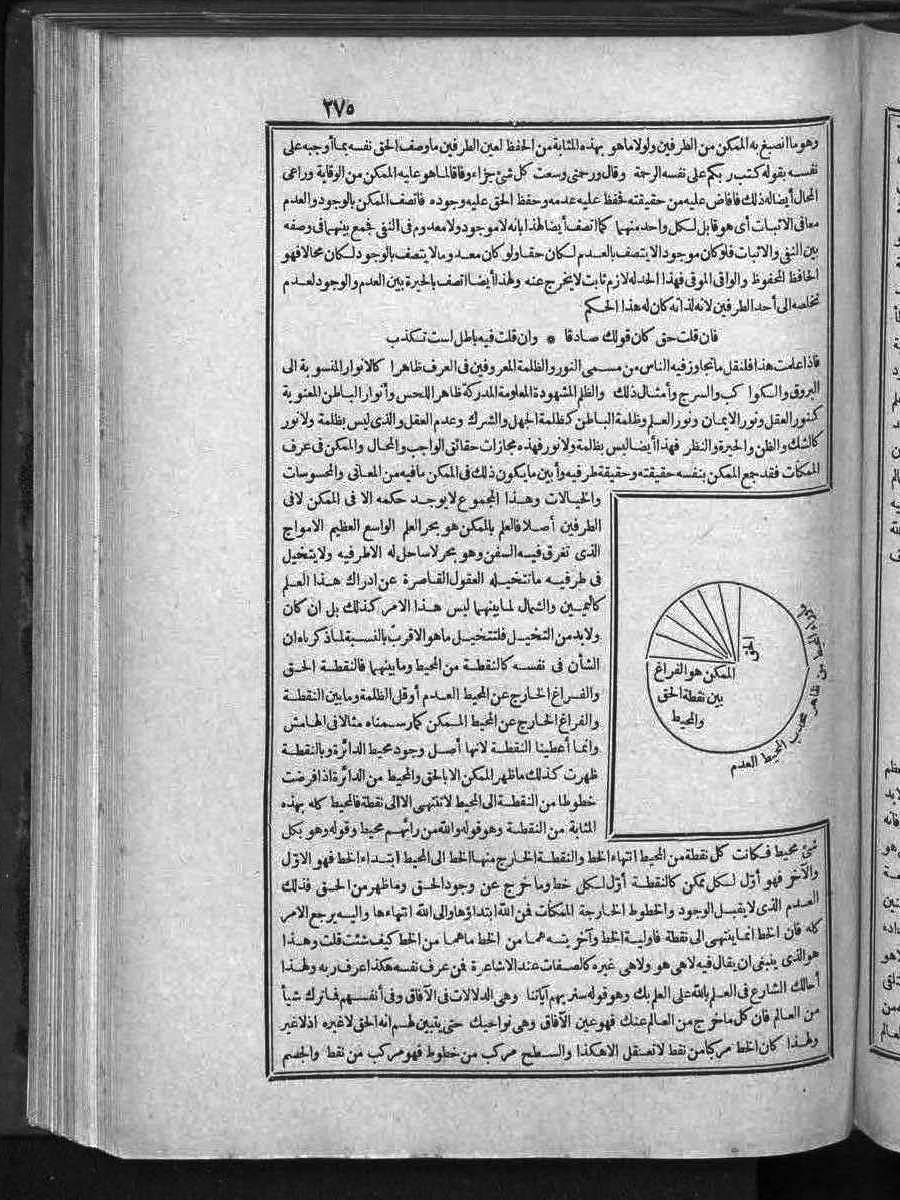 ٢٧٥
وهو ما انصبغ به الممكن من الطرفين ولولا ما هو بهذه المثابة من الحفظ لعين الطرفين ما وصف الحق نفسه بما أوجبه على
نفسه بقوله كتب ربكم على نفسه الرحمة وقال ورحمتى وسعت كل شئ جزاء وفاقا لما هو عليه الممكن من الوقاية وراعى
المحال أيضا له ذلك فأفاض عليه من حقيقته فحفظ عليه عدمه وحفظ الحق عليه وجوده فاتصف الممكن بالوجود والعدم
معا فى الاثبات أى هو قابل لكل واحد منهما كما اتصف أيضا لهذا بانه لا موجود ولا معدوم فى النفى فجمع بينهما فى وصفه
بين النفى والاثبات فلو كان موجودا لا يتصف بالعدم لكان حقا ولو كان معدوما لا يتصف بالوجود لكان محالا فهو
الحافظ المحفوظ والواقى الموقى فهذا الحد له لازم ثابت لا يخرج عنه ولهذا أيضا اتصف بالحيرة بين العدم والوجود لعدم
تخلصه الى أحد الطرفين لانه لذاته كان له هذا الحكم
فان قلت حق كان قولك صادقا * وان قلت فيه باطل لست تكذب
فاذا علمت هذا فلنقل ما تجاوز فيه الناس من مسمى النور والظلمة المعروفين فى العرف ظاهرا كالانوار المنسوبة الى
البروق والكواكب والسرج وأمثال ذلك والظلم المشهودة المعلومة المدركة ظاهر اللحس وأنوار الباطن المعنوية
كنور العقل ونور الايمان ونور العلم وظلمة الباطن كظلمة الجهل والشرك وعدم العقل والذى ليس بظلمة ولا نور
كالشك والظن والحيرة والنظر فهذا أيضا ليس بظلمة ولا نور فهذه مجازات حقائق الواجب والمحال والممكن فى عرف
الممكنات فقد جمع الممكن بنفسه حقيقته وحقيقة طرفيه وأبين ما يكون ذلك فى الممكن ما فيه من المعانى والمحسوسات
والخيالات وهذا المجموع لا يوجد حكمه الا فى الممكن لا فى
الطرفين أصلا فالعلم بالممكن هو بحر العلم الواسع العظيم الامواج
الذى تغرق فيه السفن وهو بحر لا ساحل له الا طرفيه ولا يتخيل
فى طرفيه ما تتخيله العقول القاصرة عن ادراك هذا العلم
كاليمين والشمال لما بينهما ليس هذا الامر كذلك بل ان كان
ولا بد من التخيل فلتتخيل ما هو الاقرب بالنسبة لما ذكرناه ان
الشأن فى نفسه كالنقطة من المحيط وما بينهما فالنقطة الحق
والفراغ الخارج عن المحيط العدم أو قل الظلمة وما بين النقطة
والفراغ الخارج عن المحيط الممكن كما رسمناه مثالا فى الهامش
وانما أعطينا النقطة لانها أصل وجود محيط الدائرة وبالنقطة
ظهرت كذلك ما ظهر الممكن الا بالحق والمحيط من الدائرة اذا فرضت
خطوطا من النقطة الى المحيط لا تنتهى الا الى نقطة فالمحيط كله بهذه
المثابة من النقطة وهو قوله والله من ورائهم محيط وقوله وهو بكل
شئ محيط فكانت كل نقطة من المحيط انتهاء الخط والنقطة الخارج منها الخط الى المحيط ابتداء الخط فهو الاوّل
والآخر فهو أوّل لكل ممكن كالنقطة أوّل لكل خط وما خرج عن وجود الحق وما ظهر من الحق فذلك
العدم الذى لا يقبل الوجود والخطوط الخارجة الممكنات فمن الله ابتداؤها والى الله انتهاءها واليه يرجع الامر
كله فان الخط انما ينتهى الى نقطة فاولية الخط وآخريته هما من الخط ما هما من الخط كيف شئت قلت وهذا
هو الذى ينبغى ان يقال فيه لا هى هو ولا هى غيره كالصفات عند الاشاعرة فمن عرف نفسه هكذا عرف ربه ولهذا
أحالك الشارع فى العلم بالله على العلم بك وهو قوله سنريهم آياتنا وهى الدلالات فى الآفاق وفى أنفسهم فما ترك شيأ
من العالم فان كل ما خرج من العالم عنك فهو عين الآفاق وهى نواحيك حتى يتبين لهم انه الحق لا غيره اذ لا غير
ولهذا كان الخط مركبا من نقط لا تعقل الا هكذا والسطح مركب من خطوط فهو مركب من نقط والجسم
الحق
الممكن هو الفراغ
بين نقطة الحق
والمحيط
ما وراء المحيط من ظاهر محدب المحيط العدم